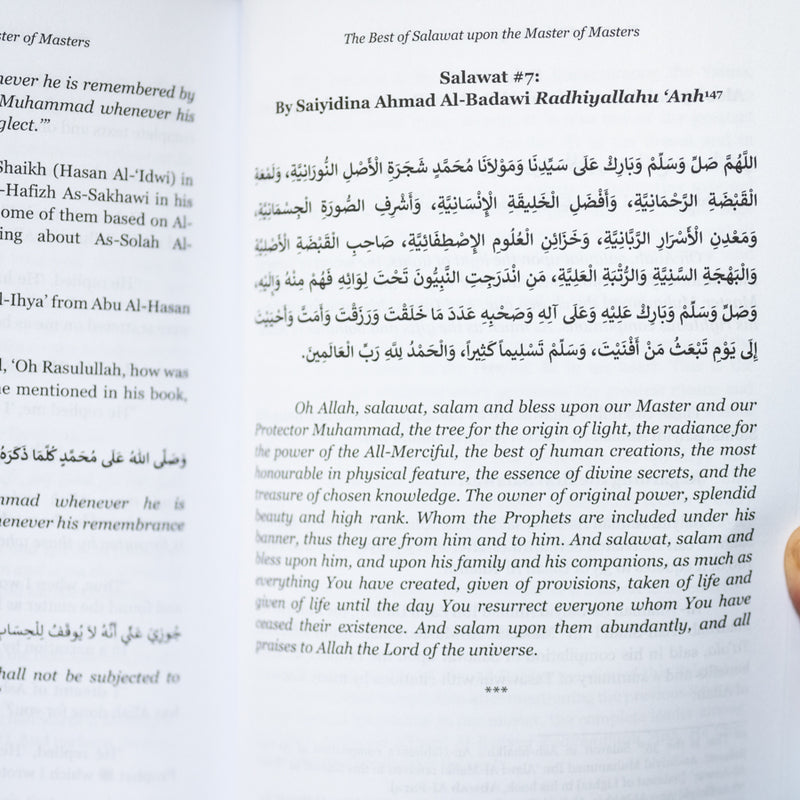 ster of Masters
never he is remembered by
Muhammad whenever his
glect.’”
Shaikh (Hasan Al-‘Idwi) in
-Hafizh As-Sakhawi in his
ome of them based on Al-
ing about As-Solah Al-
l-Ihya’ from Abu Al-Hasan
l, ‘Oh Rasulullah, how was
e mentioned in his book,
وَصَلَّى اللهُ عَلَى مُحَمَّدٍ كُلَّمَا ذَكَرَهُ
mmad whenever he is
enever his remembrance
جُوزِيَ عَنِّي أَنَّهُ لاَ يُوقَفُ لِلْحِسَابِ
hall not be subjected to
The Best of Salawat upon the Master of Masters
Salawat #7:
By Saiyidina Ahmad Al-Badawi Radhiyallahu ‘Anh147
اللَّهُمَّ صَلِّ وَسَلِّمْ وَبَارِكْ عَلَى سَيِّدِنَا وَمَوْلَانَا مُحَمَّدٍ شَجَرَةِ الْأَصْلِ النُّورَانِيَّةِ، وَلَمْعَةِ
الْقَبْضَةِ الرَّحْمَانِيَّةِ، وَأَفْضَلِ الْخَلِيقَةِ الْإِنْسَانِيَّةِ، وَأَشْرَفِ الصُّورَةِ الْجِسْمَانِيَّةِ،
وَمَعْدِنِ الْأَسْرَارِ الرَّبَّانِيَّةِ، وَخَزَائِنِ الْعُلُومِ الْإِصْطِفَائِيَّةِ، صَاحِبِ الْقَبْضَةِ الْأَصْلِيَّةِ
وَالْبَهْجَةِ السَّنِيَّةِ وَالرُّتْبَةِ الْعَلِيَّةِ، مَنِ انْدَرَجَتِ النَّبِيُّونَ تَحْتَ لِوَائِهِ فَهُمْ مِنْهُ وَإِلَيْهِ،
وَصَلِّ وَسَلِّمْ وَبَارِكْ عَلَيْهِ وَعَلَى آلِهِ وَصَحْبِهِ عَدَدَ مَا خَلَقْتَ وَرَزَقْتَ وَأَمَتَّ وَأَحْيَيْتَ
إِلَى يَوْمِ تَبْعَثُ مَنْ أَفْنَيْتَ، وَسَلِّمْ تَسْلِيماً كَثِيراً، وَالْحَمْدُ لِلَّهِ رَبِّ الْعَالَمِينَ.
Oh Allah, salawat, salam and bless upon our Master and our
Protector Muhammad, the tree for the origin of light, the radiance for
the power of the All-Merciful, the best of human creations, the most
honourable in physical feature, the essence of divine secrets, and the
treasure of chosen knowledge. The owner of original power, splendid
beauty and high rank. Whom the Prophets are included under his
banner, thus they are from him and to him. And salawat, salam and
bless upon him, and upon his family and his companions, as much as
everything You have created, given of provisions, taken of life and
given of life until the day You resurrect everyone whom You have
ceased their existence. And salam upon them abundantly, and all
praises to Allah the Lord of the universe.
***